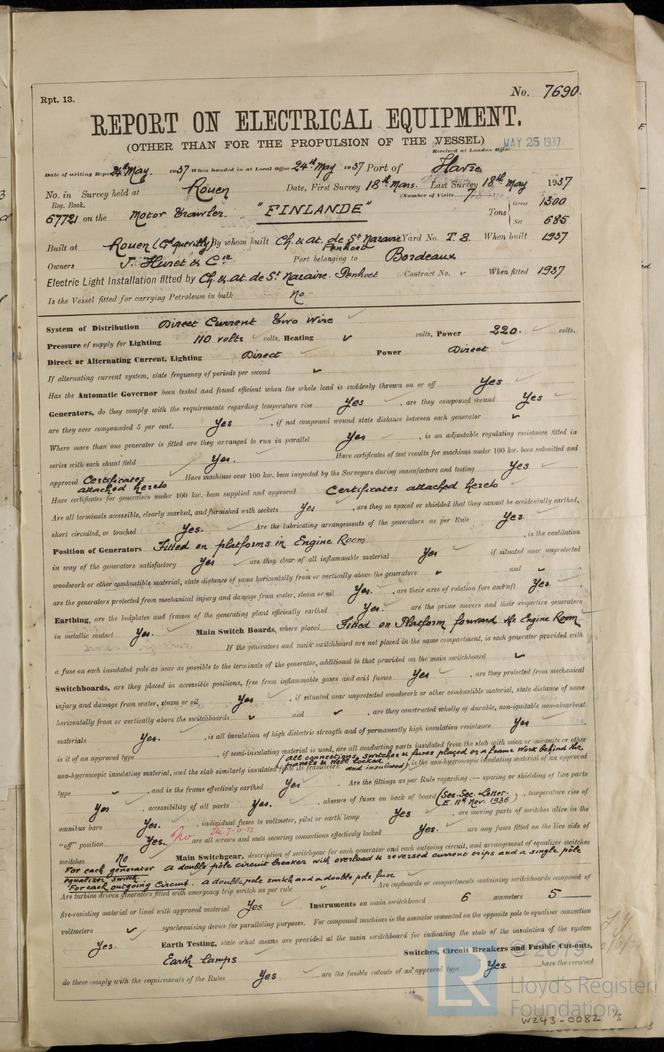 Rpt. 13.
No. 7690.
REPORT ON ELECTRICAL EQUIPMENT.
(OTHER THAN FOR THE PROPULSION OF THE VESSEL)
MAY 25 1937
Received at London Office
Date of writing Report 24th May 1937 When handed in at Local Office 24th May 1937 Port of Havre
No. in Survey held at Rouen Date, First Survey 18th Mars. Last Survey 18th May 1937
Reg. Book. (Number of Visits 7)
67721 on the Motor Trawler. "FINLANDE" Tons Gross 1300 Net 685
Built at Rouen (Gd quevilly) By whom built Ch. & at. de St Nazaire Penhoet Yard No. T. 8. When built 1937
Owners J. Huret & Cie Port belonging to Bordeaux
Electric Light Installation fitted by Ch. & at. de St Nazaire. Penhoet Contract No. When fitted 1937
Is the Vessel fitted for carrying Petroleum in bulk No
System of Distribution Direct Current Two Wire
Pressure of supply for Lighting 110 volts volts, Heating volts, Power 220. volts.
Direct or Alternating Current, Lighting Direct Power Direct
If alternating current system, state frequency of periods per second
Has the Automatic Governor been tested and found efficient when the whole load is suddenly thrown on or off Yes
Generators, do they comply with the requirements regarding temperature rise Yes , are they compound wound Yes
are they over compounded 5 per cent. Yes , if not compound wound state distance between each generator
Where more than one generator is fitted are they arranged to run in parallel Yes , is an adjustable regulating resistance fitted in
series with each shunt field Yes. Have certificates of test results for machines under 100 kw. been submitted and
approved Certificates attached hereto Have machines over 100 kw. been inspected by the Surveyors during manufacture and testing Yes
Have certificates for generators under 100 kw. been supplied and approved Certificates attached hereto
Are all terminals accessible, clearly marked, and furnished with sockets Yes , are they so spaced or shielded that they cannot be accidentally earthed,
short circuited, or touched Yes. Are the lubricating arrangements of the generators as per Rule Yes.
Position of Generators Fitted on platforms in Engine Room , is the ventilation
in way of the generators satisfactory Yes are they clear of all inflammable material Yes if situated near unprotected
woodwork or other combustible material, state distance of same horizontally from or vertically above the generators and
are the generators protected from mechanical injury and damage from water, steam or oil Yes. , are their axes of rotation fore and aft Yes.
Earthing, are the bedplates and frames of the generating plant efficiently earthed Yes. are the prime movers and their respective generators
in metallic contact Yes. Main Switch Boards, where placed Fitted on Platform forward the Engine Room
If the generators and main switchboard are not placed in the same compartment, is each generator provided with
a fuse on each insulated pole as near as possible to the terminals of the generator, additional to that provided on the main switchboard
Switchboards, are they placed in accessible positions, free from inflammable gases and acid fumes Yes , are they protected from mechanical
injury and damage from water, steam or oil Yes , if situated near unprotected woodwork or other combustible material, state distance of same
horizontally from or vertically above the switchboards and , are they constructed wholly of durable, non-ignitable non-absorbent
materials Yes. , is all insulation of high dielectric strength and of permanently high insulation resistance Yes
is it of an approved type , if semi-insulating material is used, are all conducting parts insulated from the slab with mica or micanite or other
non-hygroscopic insulating material, and the slab similarly insulated from its framework (all connections switches & fuses placed on a frame work behind the panels & well locked and insulated) is the non-hygroscopic insulating material of an approved
type , and is the frame effectively earthed Yes Are the fittings as per Rule regarding :— spacing or shielding of live parts
Yes , accessibility of all parts Yes. , absence of fuses on back of board (See Sec. Letter. E. 11th Nov. 1936) , temperature rise of
omnibus bars Yes. , individual fuses to voltmeter, pilot or earth lamp Yes , are moving parts of switches alive in the
"off" position Yes. No are all screws and nuts securing connections effectively locked Yes. are any fuses fitted on the live side of
switches No Main Switchgear, description of switchgear for each generator and each outgoing circuit, and arrangement of equalizer switches
For each generator a double pole circuit breaker with overload & reversed current trips and a single pole equalizer switch.
For each outgoing Circuit. a double pole switch and a double pole fuse Are cupboards or compartments containing switchboards composed of
Are turbine driven generators fitted with emergency trip switch as per rule
fire-resisting material or lined with approved material Yes Instruments on main switchboard 6 ammeters 5
voltmeters synchronising device for paralleling purposes. For compound machines is the ammeter connected on the opposite pole to equaliser connection
Yes. Earth Testing, state what means are provided at the main switchboard for indicating the state of the insulation of the system
Earth Lamps Switches, Circuit Breakers and Fusible Cut-outs,
do these comply with the requirements of the Rules Yes are the fusible cutouts of an approved type Yes have the reversed
© 2019
LR
Lloyd's Register
Foundation
W243-0082 1/3